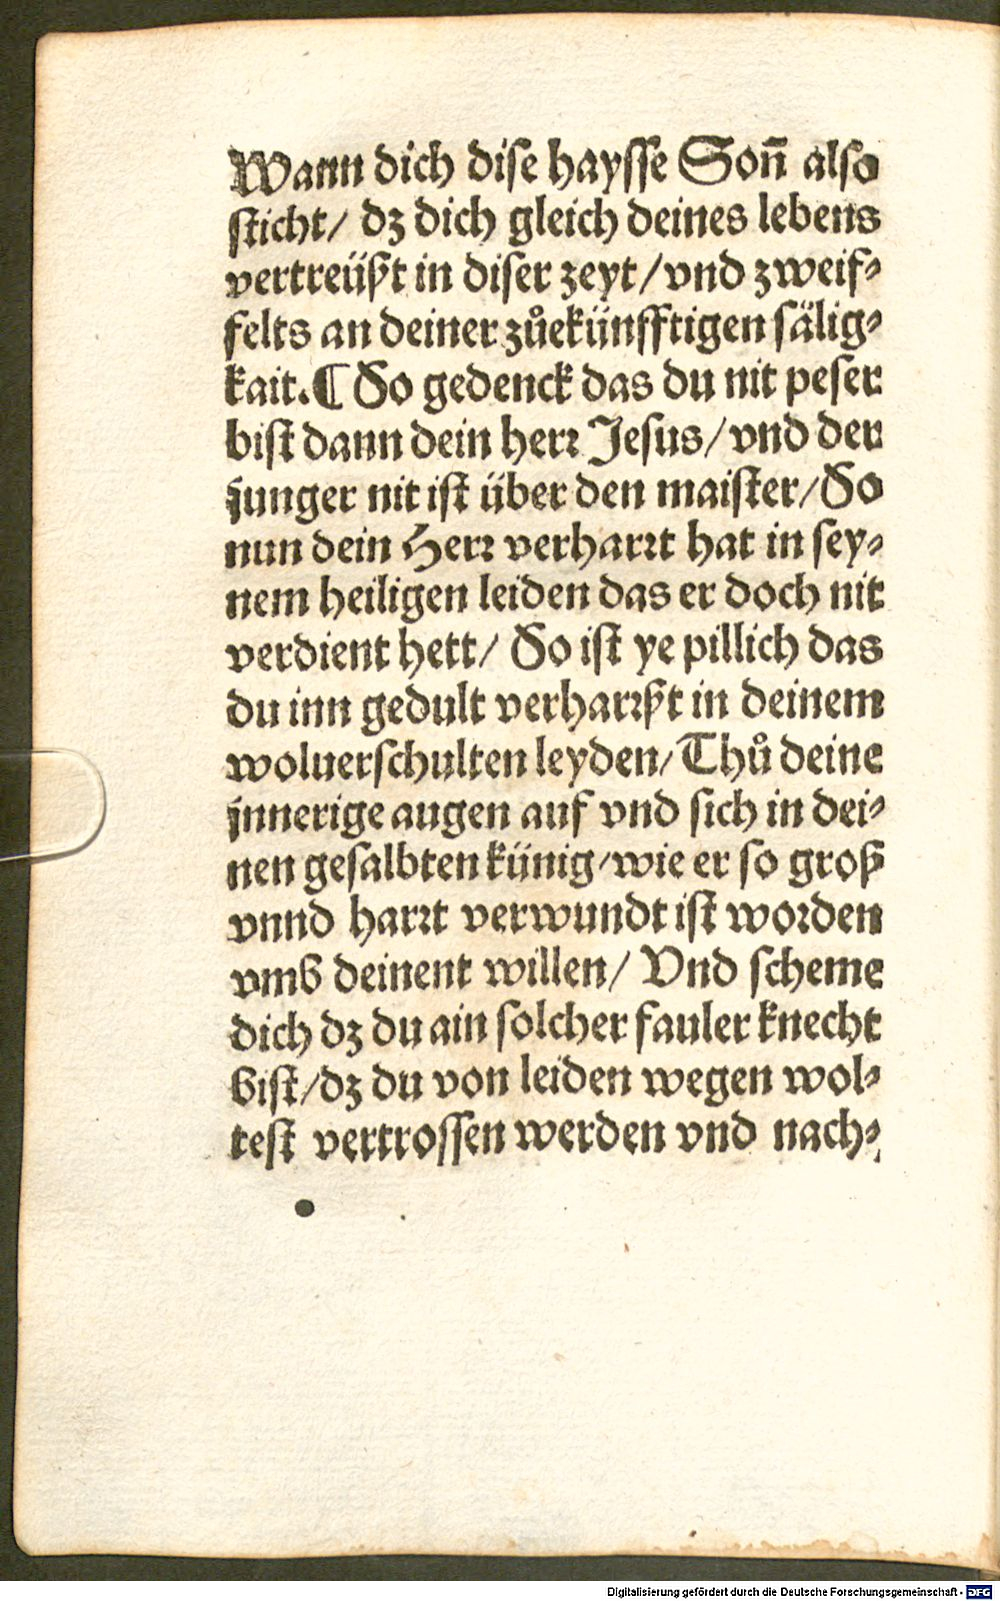 Wann dich dise haysse Son̄ also
sticht/ dz dich gleich deines lebens
vertreüßt in diser zeyt/vnd zweif⸗
felts an deiner zůekünfftigen sälig⸗
kait.¶ So gedenck das du nit peser
bist dann dein herꝛ Jesus/vnd der
junger nit ist über den maister/So
nun dein Herꝛ verharꝛt hat in sey⸗
nem heiligen leiden das er doch nit
verdient hett/ So ist ye pillich das
du inn gedult verharꝛßt in deinem
woluerschulten leyden/Thů deine
jnnerige augen auf vnd sich in dei⸗
nen gesalbten künig/wie er so groß
vnnd harꝛt verwundt ist woꝛden
vmb deinent willen/ Vnd scheme
dich dz du ain solcher fauler knecht
bist/dz du von leiden wegen wol⸗
test vertrossen werden vnd nach⸗
Digitalisierung gefördert durch die Deutsche Forschungsgemeinschaft - DFG